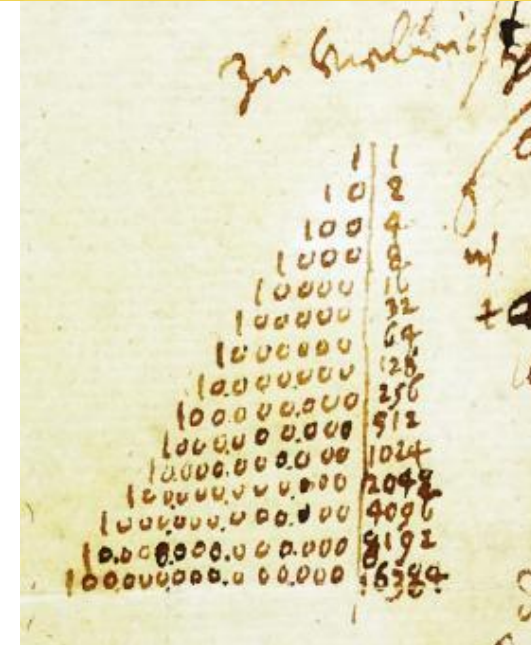 Zu
1 | 1
10 | 2
100 | 4
1000 | 8
10000 | 16
100000 | 32
1000000 | 64
10000000 | 128
100000000 | 256
1000000000 | 512
10000000000 | 1024
100000000000 | 2048
1000000000000 | 4096
10000000000000 | 8192
100000000000000 | 16384